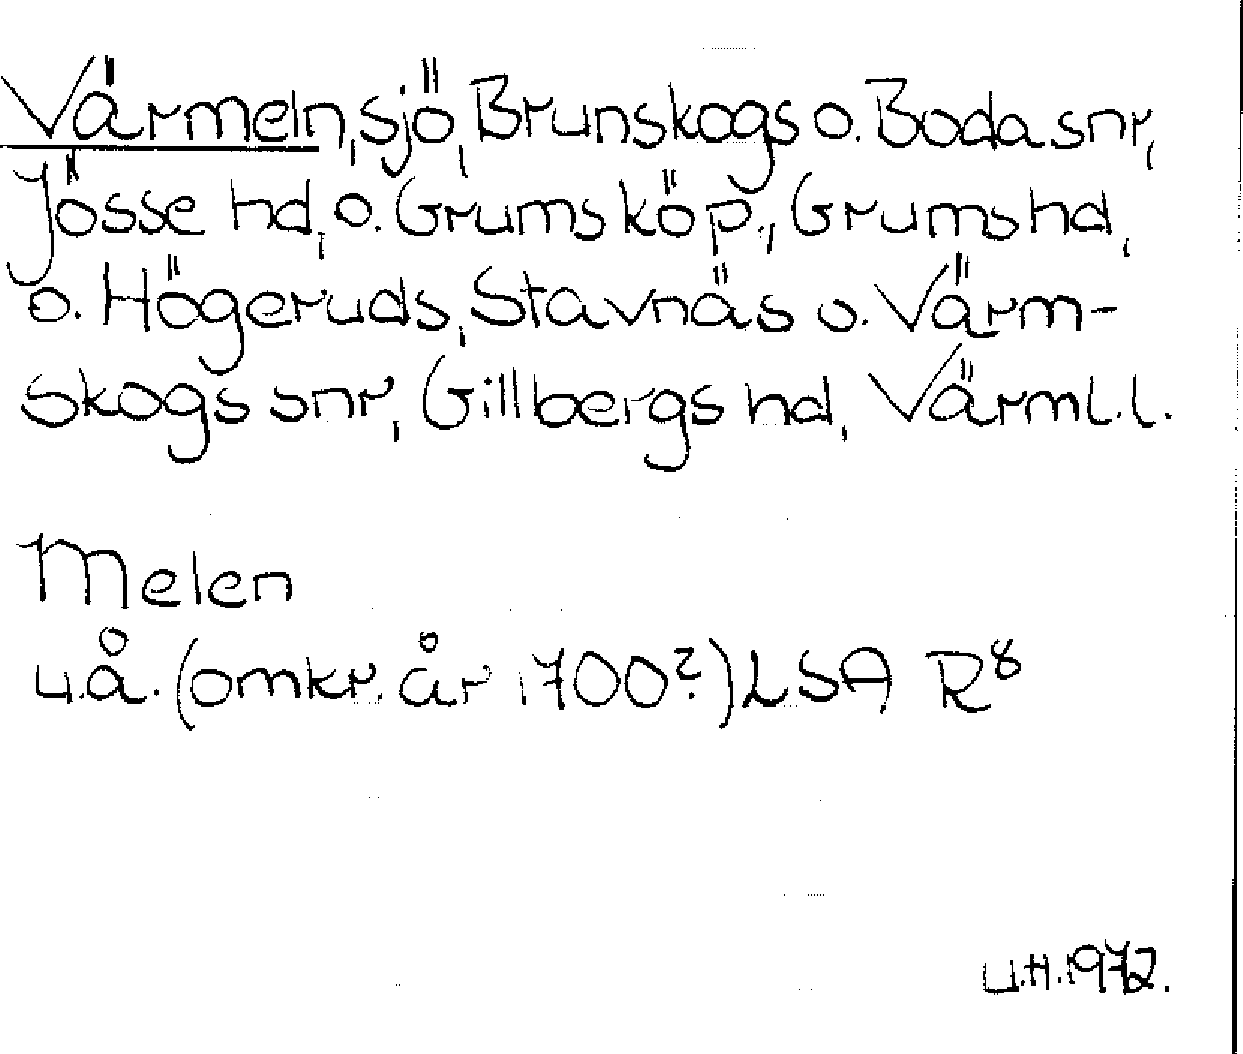 Värmeln, sjö, Brunskogs o. Boda snr,
Jösse hd, o. Grums köp., Grums hd,
o. Högeruds, Stavnäs o. Värm-
skogs snr, Gillbergs hd, Värml. l.
Melen
u.å. (omkr. år 1700?) LSA R8
U.H. 1972.